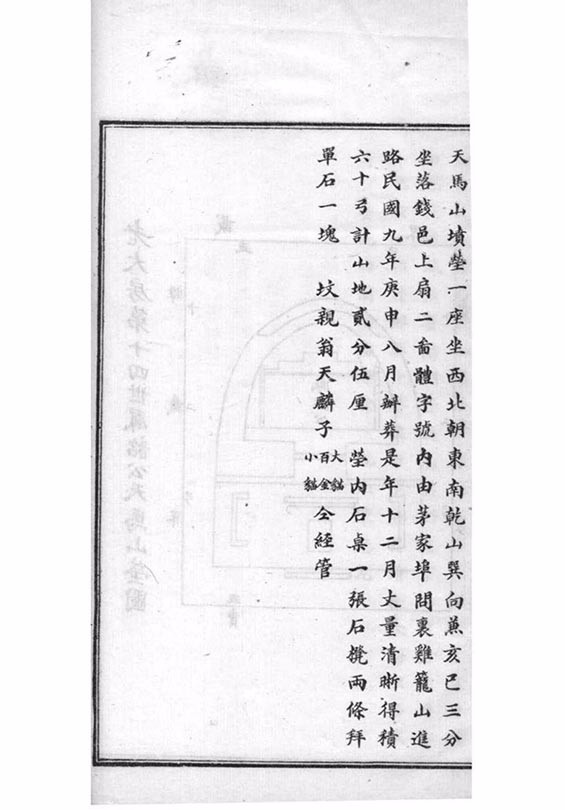 天馬山墳塋一座坐西北朝東南乾山巽向蒹亥巳三分
坐落錢邑上扇二啚體字號內由茅家埠問裏雞籠山進
路民國九年庚申八月辦葬是年十二月丈量清晰得積
六十弓計山地貳分伍厘 塋內石桌一張石櫈兩條拜
單石一塊 坟親翁天麟子大貓百金小貓仝經管